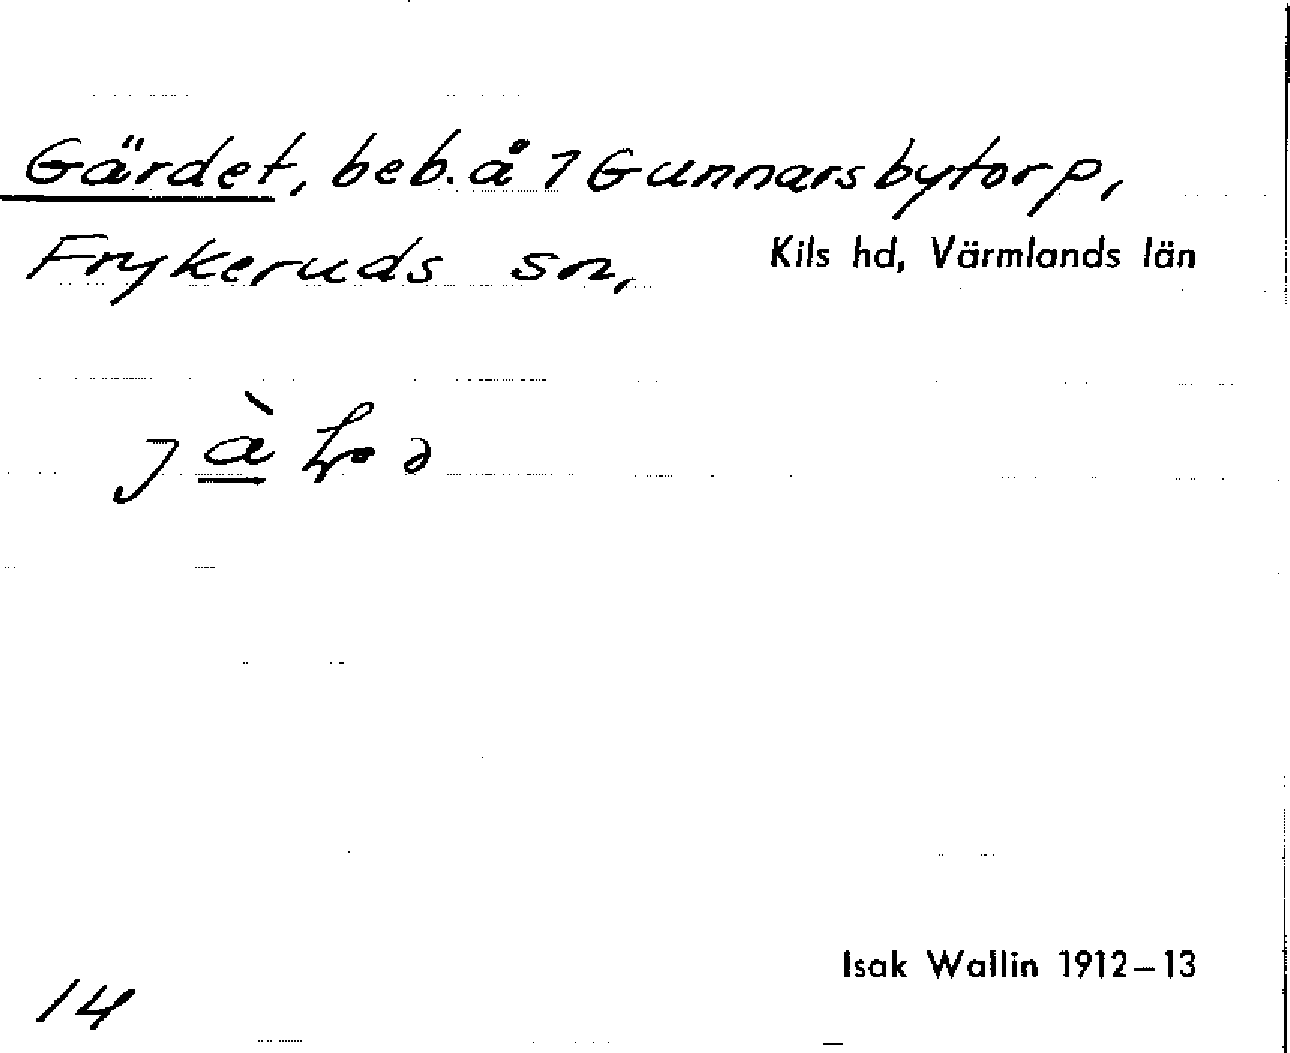 Gärdet, beb. å 7 Gunnarsbytorp,
Frykeruds sn,
Kils hd, Värmlands län
Isak Wallin 1912–13
14